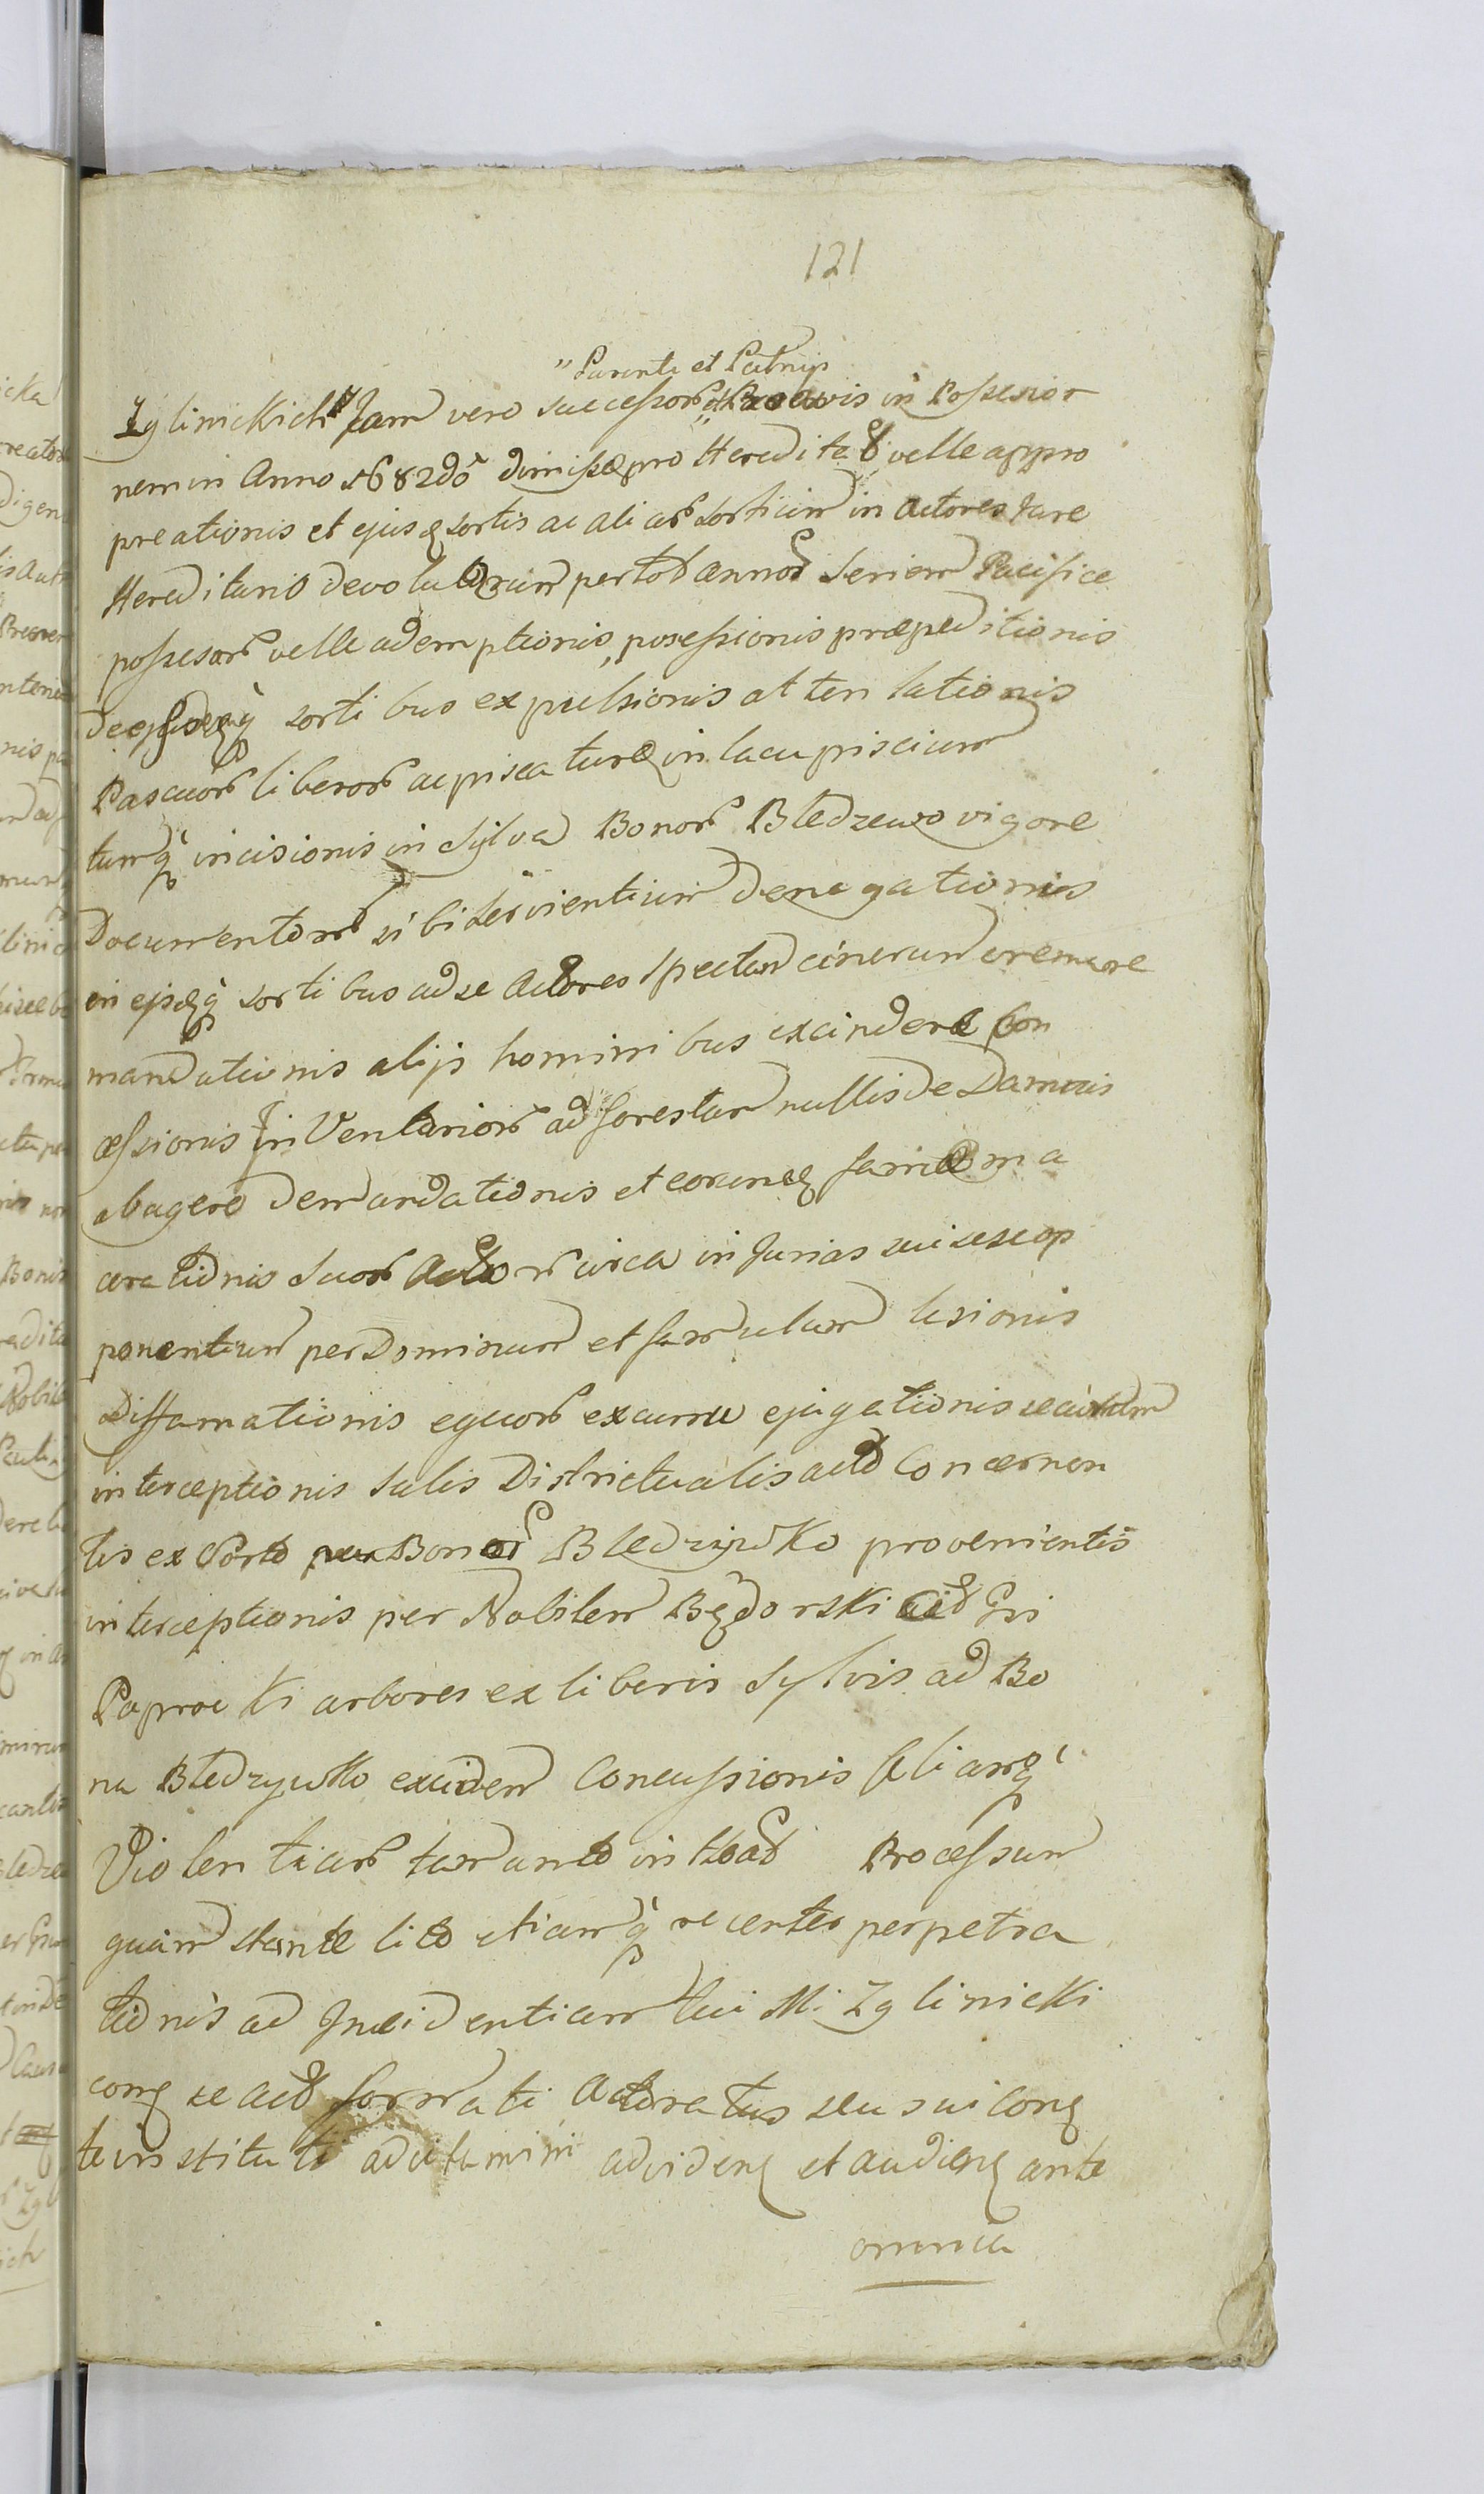 121
"Parente et Patruis
Zglinickich Jam vero successor in Possesior
nem in Anno 1682dô dimissæ pro Heredite velle appro
preationis et ejusq sortis ac aliar sortium in Actores Jure
Hereditario devolutarum per tot annor Seriem Pacifice
possesar velle ademptionis, posessionis præpeditionis
sortibus expulsionis attentationis
Pascuor liberor ac piscaturæ in lacu piscium
tumq incisionis in Sylva Bonor Bledzewo vigore
Documentor sibi servientium denegationis
in sortibus ad se Actores spectan cinerum cremare
mandationis alijs hominibus excindere Con
cessionis Inventarior ad forestam nullis de Damnis
ab agero demandationis et eorunq fame ma
cerationis Suor Actor circa in Jurias sui sese op
ponentium per Dominum et famulum lesionis
Diffamationis equor ex curru ejugationis
interceptionis Salis Districtualis actô Concernen
tis ex Porto Bonor Bledzywko provenientis
interceptionis per Nobilem Będorski
Paprocki arbores ex liberis Sylvis ad Bo
na Bledzywko Concussionis Aliarq
Violentiar tam ante Processum
quam stante lite etiamq recenter perpetra
tionis ad Incidentiam tui Mi Zglinicki
conq se formati Actoratus seu sui conq
te instituti ad videnq et audienq ante
omnia